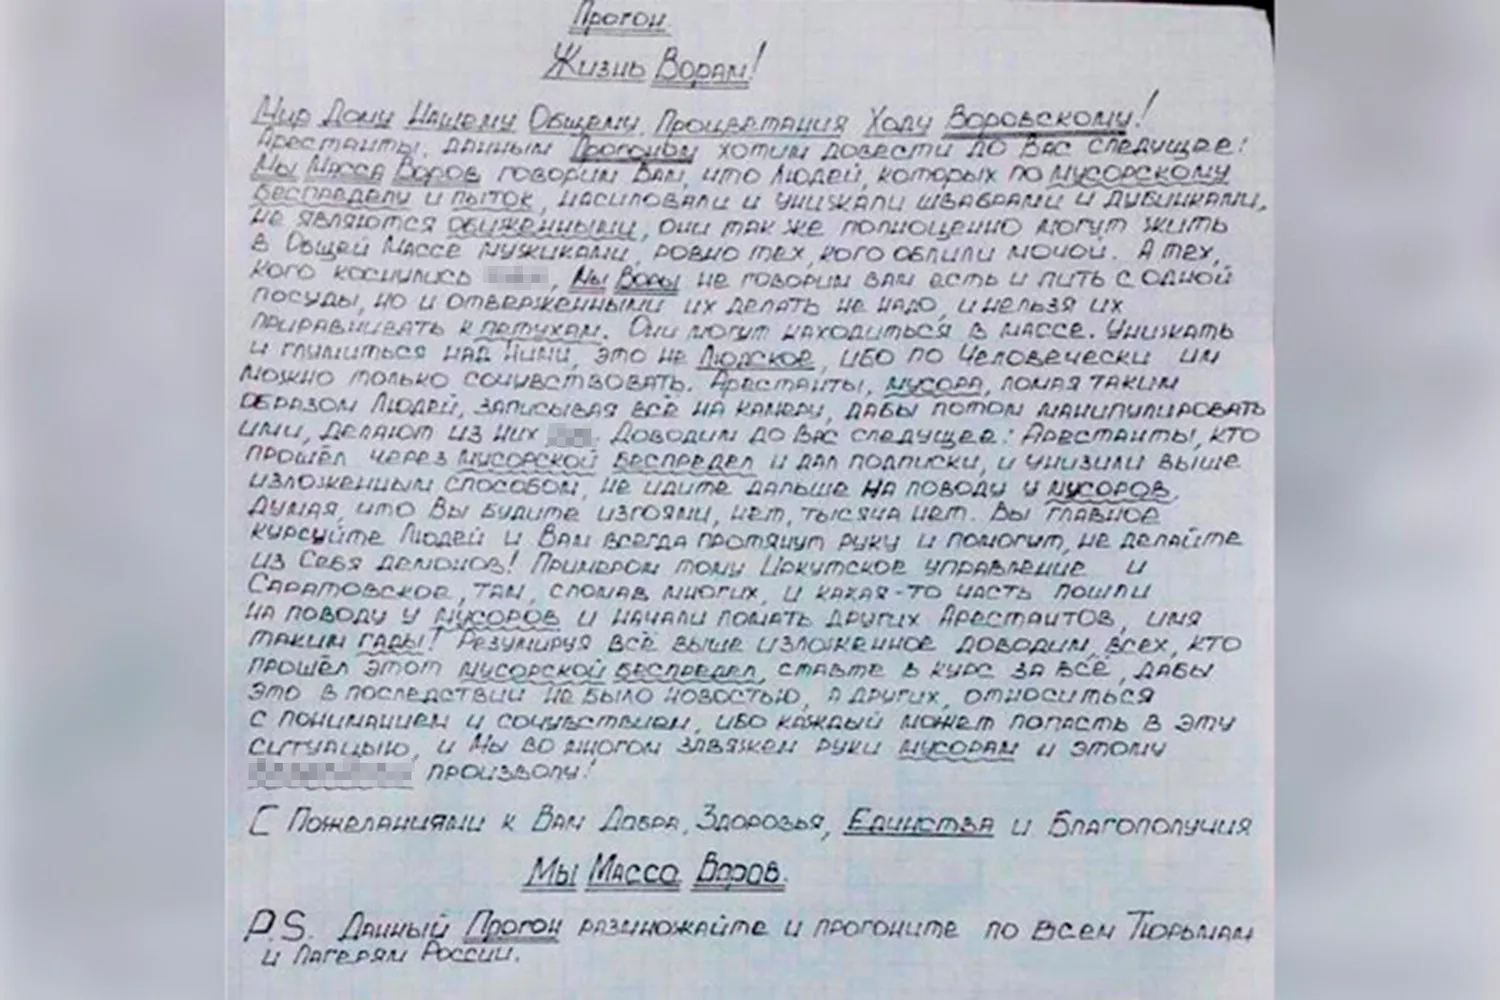 Прогон.
Жизнь Ворам!
Мир Дому Нашему Общему, Процветания Ходу Воровскому!
Арестанты, данным Прогоном хотим довести до Вас следущее:
Мы Масса Воров говорим Вам, что Людей, которых по мусорскому
беспределу и пыток, насиловали и унижали швабрами и дубинками,
не являются обиженными, они так же полноценно могут жить
в Общей Массе мужиками, ровно тех, кого облили мочой. А тех,
кого коснулись , Мы Воры не говорим вам есть и пить с одной
посуды, но и отверженными их делать не надо, и нельзя их
приравнивать к петухам. Они могут находиться в массе. Унижать
и глумиться над Ними, это не Людское, ибо по Человечески им
можно только сочувствовать. Арестанты, мусора, ломая таким
образом Людей, записывая всё на камеру, дабы потом манипулировать
ими, делают из них . Доводим до Вас следущее: Арестанты, кто
прошёл через мусорской беспредел и дал подписки, и унизили выше
изложенным способом, не идите дальше на поводу у мусоров,
Думая, что Вы будите изгоями, нет, тысяча нет. Вы главное
курсуйте Людей и Вам всегда протянут руку и помогут, не делайте
из Себя демонов! Примером тому Иркутское управление и
Саратовское, там, сломав многих, и какая-то часть пошли
на поводу у мусоров и начали ломать других Арестантов, имя
таким гады! Резумируя всё выше изложенное доводим, всех, кто
прошёл этот мусорской беспредел, ставте в курс за всё, дабы
это в последствии не было новостью, а других, относиться
с пониманием и сочувствием, ибо каждый может попасть в эту
ситуацыю, и Мы во многом завяжем руки мусорам и этому
произволу!
С Пожеланиями к Вам Добра, Здоровья, Единства и Благополучия
Мы Масса Воров.
P.S. Данный Прогон размножайте и прогоните по всем Тюрьмам
и Лагерям России.